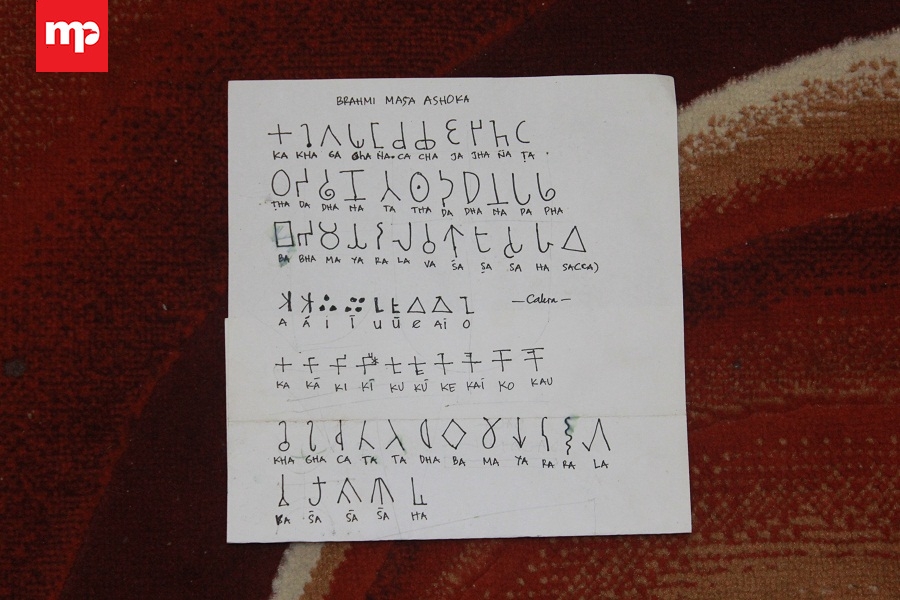 mp
BRAHMI MASA ASHOKA
𑀓 𑀔 𑀕 𑀖 𑀗 𑀘 𑀙 𑀚 𑀛 𑀜 𑀝
KA KHA GA GhA ṄA. CA CHA JA JHA ÑA ṬA .
𑀞 𑀟 𑀠 𑀡 𑀢 𑀣 𑀤 𑀥 𑀦 𑀧 𑀨
ṬHA DA DHA NA TA THA DA DHA NA PA PHA
𑀩 𑀪 𑀫 𑀬 𑀭 𑀮 𑀯 𑀰 𑀱 𑀲 𑀳
BA BHA MA YA RA LA VA ŚA ṢA SA HA
𑀅 𑀆 𑀇 𑀈 𑀉 𑀊 𑀏 𑀐 𑀑
A Á i Ī U Ū e Ai O
𑀓 𑀓𑀸 𑀓𑀺 𑀓𑀻 𑀓𑀼 𑀓𑀽 𑀓𑁂 𑀓𑁃 𑀓𑁄 𑀓𑁅
KA KĀ KI KĪ KU KŪ KE KAI KO KAU
KHA GHA CA TA TA DHA BA MA YA RA RA LA
ŚA ŚA ŚA HA